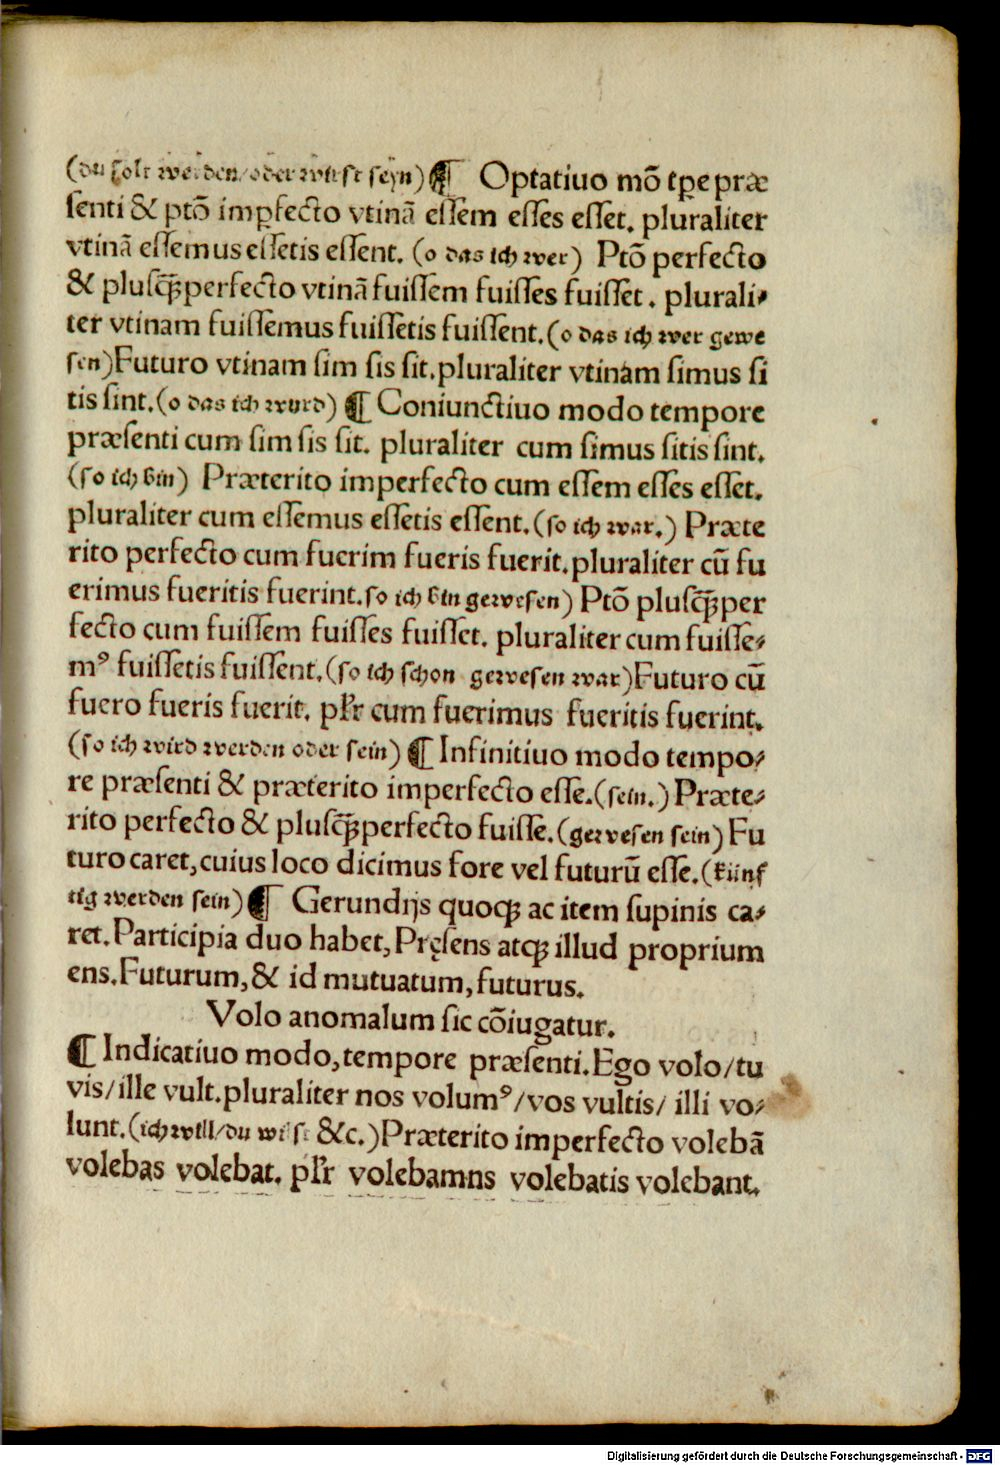 (du solt werden/oder wirst seyn)¶ Optatiuo mō tꝑe præ
ſenti & ptō imꝑfecto vtinā eſſem eſſes eſſet. pluraliter
vtinā eſſemus eſſetis eſſent. (o das ich wer) Ptō perfecto
& pluſꝗ̈perfecto vtinā fuiſſem fuiſſes fuiſſet. plurali⸗
ter vtinam fuiſſemus fuiſſetis fuiſſent.(o das ich wer gewe
ſen)Futuro vtinam ſim ſis ſit.pluraliter vtinam ſimus ſi
tis ſint.(o das ich wurd) ¶ Coniunctiuo modo tempore
præſenti cum ſim ſis ſit. pluraliter cum ſimus ſitis ſint.
(ſo ich bin) Præterito imperfecto cum eſſem eſſes eſſet.
pluraliter cum eſſemus eſſetis eſſent.(ſo ich war.) Præte
rito perfecto cum fuerim fueris fuerit.pluraliter cū fu
erimus fueritis fuerint.ſo ich bin geweſen) Ptō pluſꝗ̈per
fecto cum fuiſſem fuiſſes fuiſſet. pluraliter cum fuiſſe⸗
mꝰ fuiſſetis fuiſſent.(ſo ich ſchon geweſen war)Futuro cū
fuero fueris fuerit. pl̃r cum fuerimus fueritis fuerint.
(ſo ich wird werden oder ſein) ¶ Infinitiuo modo tempo⸗
re præſenti & præterito imperfecto eſſe.(ſein.) Præte⸗
rito perfecto & pluſꝗ̈perfecto fuiſſe.(geweſen ſein) Fu
turo caret,cuius loco dicimus fore vel futurū eſſe.(künf
tig werden ſein)¶ Gerundijs quoqꝫ ac item ſupinis ca⸗
ret.Participia duo habet,Pręſens atqꝫ illud proprium
ens.Futurum,& id mutuatum,futurus.
Volo anomalum ſic cōiugatur.
¶ Indicatiuo modo,tempore præſenti.Ego volo/tu
vis/ille vult.pluraliter nos volumꝰ/vos vultis/ illi vo⸗
lunt.(ich will/du wilſt &c.)Præterito imperfecto volebā
volebas volebat. pl̃r volebamns volebatis volebant.
Digitalisierung gefördert durch die Deutsche Forschungsgemeinschaft - DFG